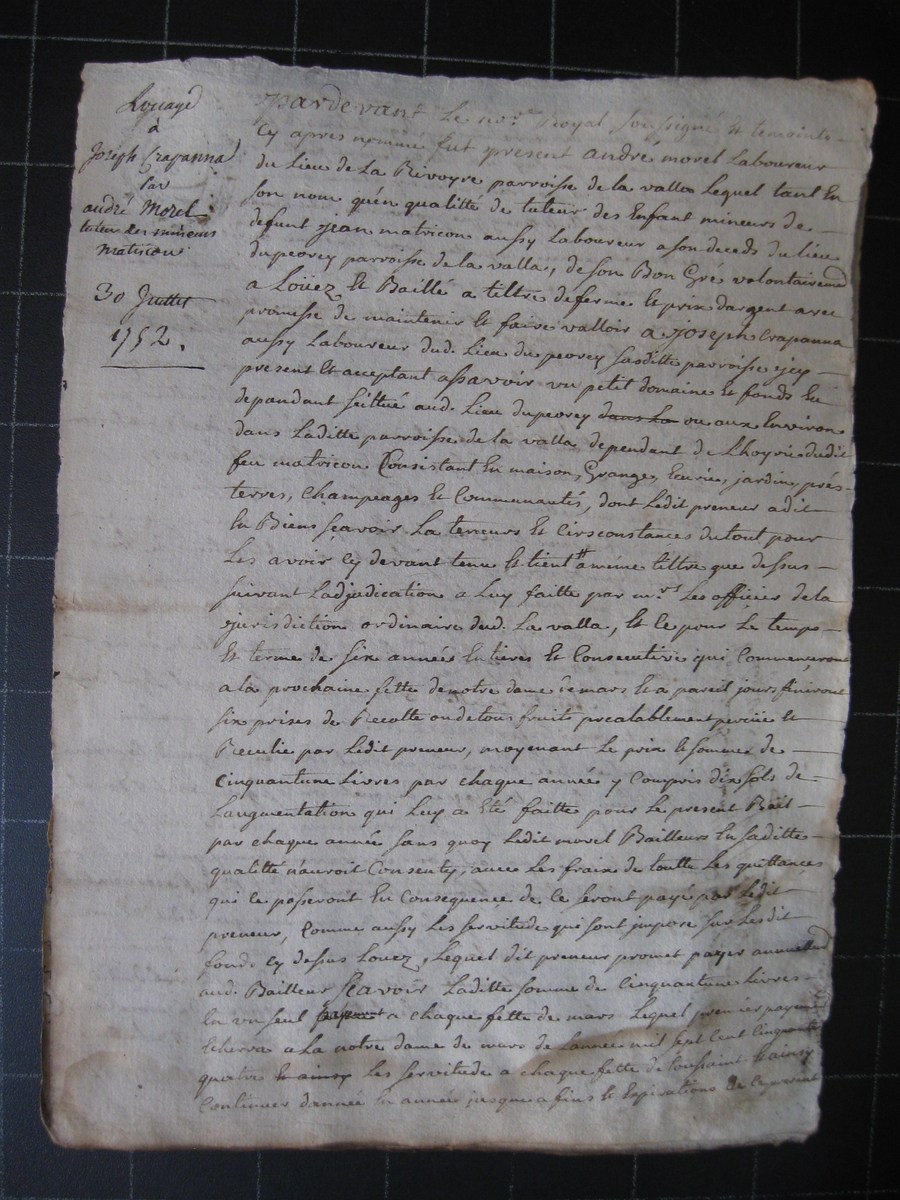 Loüage
à
Joseph Crapanna
par
andré Morel
tuteur des mineurs
matricon
30 Juillet
1752.
Pardevant Le nore Royal soussigné & temoints
Cy apres nommé fut present andré morel Laboureur
du Lieu de La Rivoyre parroisse de la valla Lequel tant En
son nom qu'en qualitté de tuteur des Enfant mineurs de
defunt Jean matricon aussy Laboureur a son deceds du lieu
du peorey parroisse de la valla, de son Bon Gré volontairemd
a Loüez Et Baillé a tiltre de ferme Et prix d'argent avec
promesse de maintenir Et faire valloir a Joseph Crapanna
aussy Laboureur dud. Lieu du peorey susditte parroisse icy
present Et acceptant assavoir un petit domaine Et fonds En
dependant scittué aud. Lieu du peorey dans La ou aux Environ
dans Laditte parroisse de la valla dependent de Lhoyrie dudit
feu matricon Consistant En maison, Granges, Ecurie, jardin, prés
terres, Champeages Et Communautés, dont Ledit preneur a dit
En Biens sçavoir La teneurs Et Circonstances du tout pour
Les avoir Cy devant tenu Et tient a même tiltre que dessus
suivant Ladjudication a Luy faitte par mrs Les officier de la
jurisdiction ordinaire dud. La valla, Et ce pour Le temps
Et terme de six années Entieres Et Consecutive qui Commenceront
a la prochaine fette de notre dame de mars Et a pareil jours finiront
six prises de Recolte ou de tous fruits prealablement perciüe Et
Reculie par Ledit preneur, moyenant Le prix Et somme de
Cinquantune Livres par chaque année y Compris dix sols de
Laugmentation qui Luy a Eté faitte pour Le present Bail
par chaque année sans quoy Ledit morel Bailleurs En saditte
qualitté n'auroit Consenty, avec Les fraix de toutte Les quittances
qui ce passeront En Consequence de ce seront payé par Ledit
preneur, Comme aussy Les servitude qui sont impose sur Lesdit
fond. Cy dessus Louez, Lequel dit preneur promet payer annuellemd
aud. Bailleur sçavoir Laditte somme de Cinquantune Livres
En un seul payement a chaque fette de mars Lequel premier payemt
Echerra a La notre dame de mars de Lannee mil sept Cent Cinquante
quatre Et ainsy Les servitude a chaque fette de toussaint Et ainsy
Continuer d'année En année jusque a fins Et Expirations de ce present